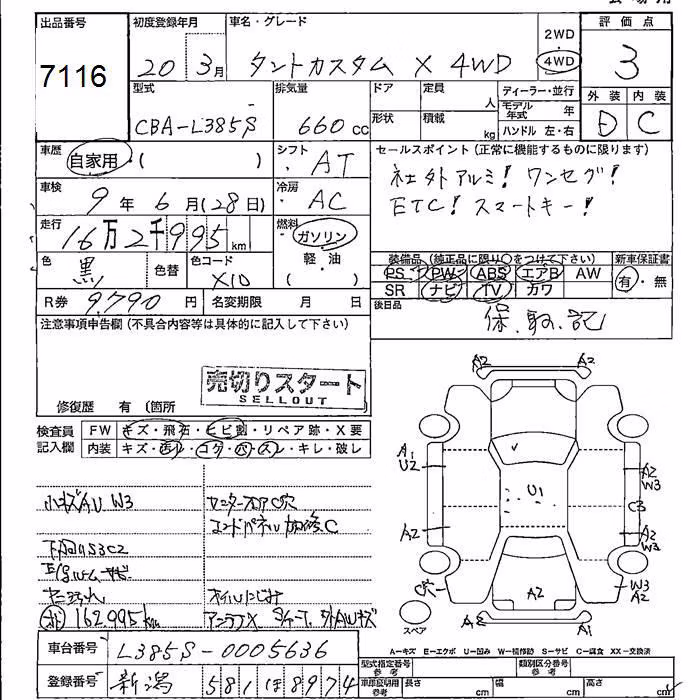 出品番号
7116
初度登録年月
20 3月
車名・グレード
タントカスタム X 4WD
2WD
4WD
評価点
3
外装 内装
D C
型式
CBA-L385S
排気量
660 cc
ドア
定員
人
形状
積載
kg
ディーラー・並行
モデル年式 年
ハンドル 左・右
車歴
自家用・( )
シフト
AT
車検
9年 6月(28日)
冷房
AC
走行
16万2千995 km
燃料
ガソリン
軽・油
( )
色
黒
色替
色コード
X10
R券 9,790 円
名変期限 月 日
セールスポイント(正常に機能するものに限ります)
社外アルミ! ワンセグ!
ETC! スマートキー!
装備品(純正品に限り○をつけて下さい)
PS PW ABS エアB AW
SR ナビ TV カワ
新車保証書
有・無
後日品
保.取.記
注意事項申告欄(不具合内容等は具体的に記入して下さい)
売切りスタート
SELLOUT
修復歴 有(箇所
検査員
記入欄
FW キズ・飛石・ヒビ割・リペア跡・X要
内装 キズ・汚レ・コゲ・穴・スレ・キレ・破レ
小キズAU W3
下回りS3C2
162,995km
車台番号
L385S-0005636
登録番号
新潟 581 ほ 8974
A2 A2
A1
U2
A2
U1
A2
W3
C3
A2
W3
W3
A2
A2
A2 A1
スペア
A-キズ E-エクボ U-凹み W-補修跡 S-サビ C-腐食 XX-交換済
型式指定番号
参考
類別区分番号
参考
車庫証明用
参考
長さ cm
幅 cm
高さ cm